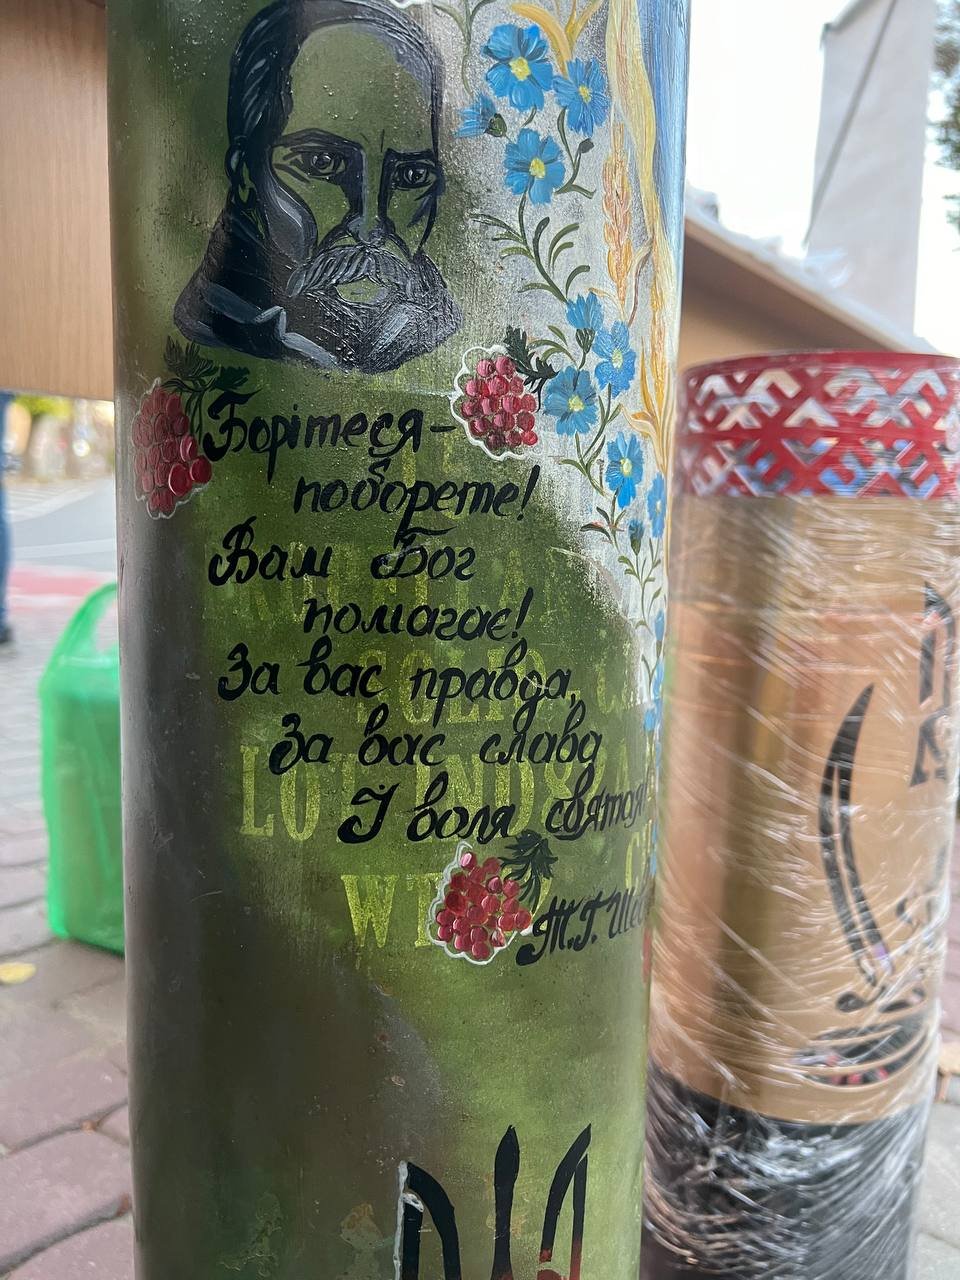 Борітеся -
поборете!
Вам Бог
помагає!
За вас правда,
За вас слава
І воля святая!
Т.Г.
LOT IND